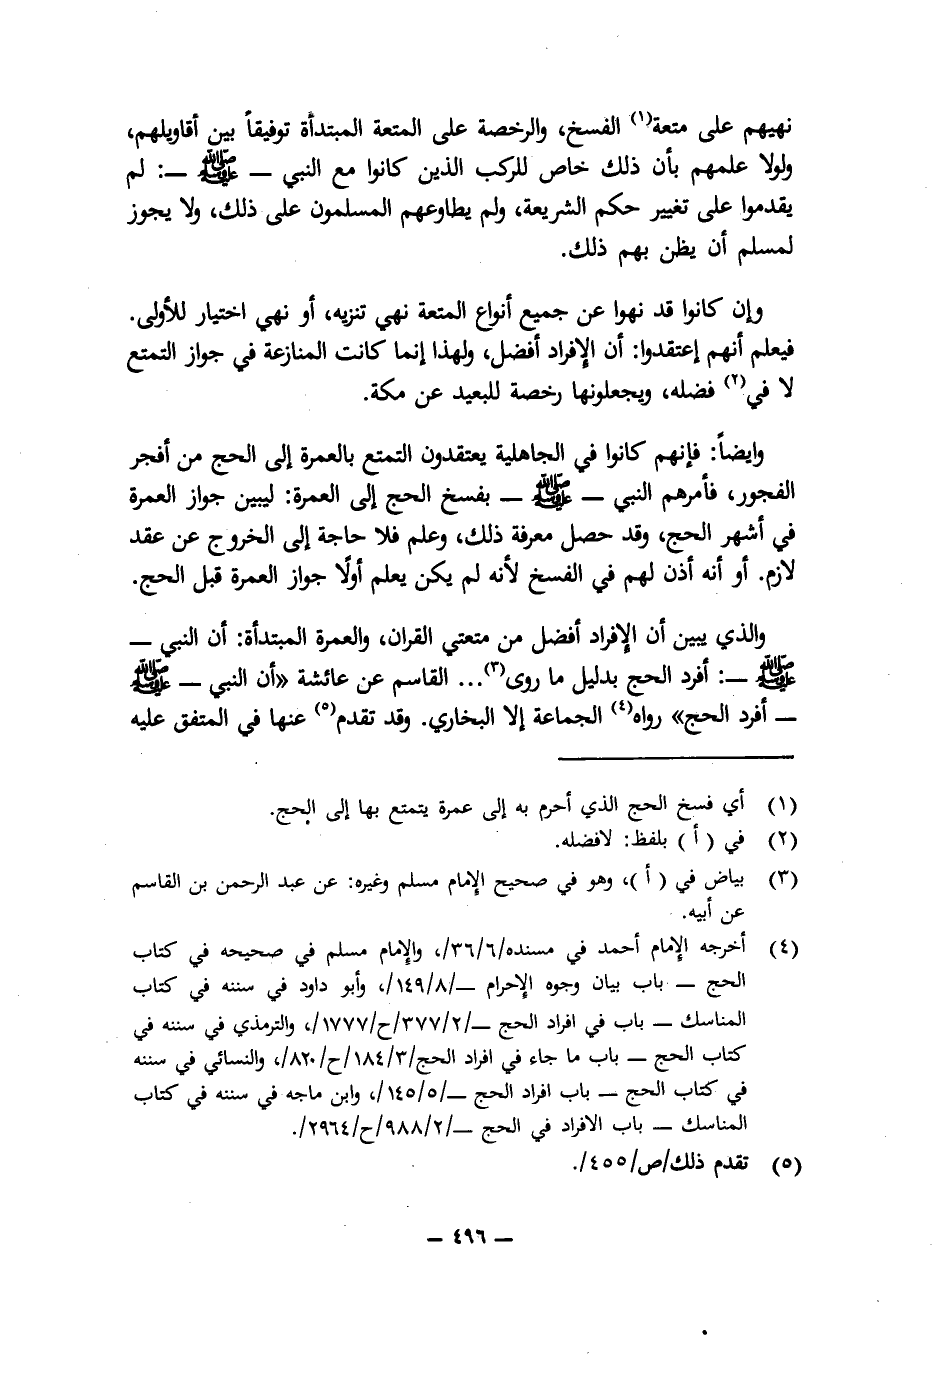 نهيهم على متعة(١) الفسخ، والرخصة على المتعة المبتدأة توفيقاً بين أقاويلهم،
ولولا علمهم بأن ذلك خاص للركب الذين كانوا مع النبي — ﷺ —: لم
يقدموا على تغيير حكم الشريعة، ولم يطاوعهم المسلمون على ذلك، ولا يجوز
لمسلم أن يظن بهم ذلك.
وإن كانوا قد نهوا عن جميع أنواع المتعة نهي تنزيه، أو نهي اختيار للأولى.
فيعلم أنهم إعتقدوا: أن الإفراد أفضل، ولهذا إنما كانت المنازعة في جواز التمتع
لا في(٢) فضله، ويجعلونها رخصة للبعيد عن مكة.
وايضاً: فإنهم كانوا في الجاهلية يعتقدون التمتع بالعمرة إلى الحج من أفجر
الفجور، فأمرهم النبي — ﷺ — بفسخ الحج إلى العمرة: ليبين جواز العمرة
في أشهر الحج، وقد حصل معرفة ذلك، وعلم فلا حاجة إلى الخروج عن عقد
لازم. أو أنه أذن لهم في الفسخ لأنه لم يكن يعلم أولًا جواز العمرة قبل الحج.
والذي يبين أن الإفراد أفضل من متعتي القران، والعمرة المبتدأة: أن النبي —
ﷺ —: أفرد الحج بدليل ما روى(٣)... القاسم عن عائشة «أن النبي — ﷺ
— أفرد الحج» رواه(٤) الجماعة إلا البخاري. وقد تقدم(٥) عنها في المتفق عليه
(١) أي فسخ الحج الذي أحرم به إلى عمرة يتمتع بها إلى الحج.
(٢) في ( أ ) بلفظ: لافضله.
(٣) بياض في ( أ )، وهو في صحيح الإمام مسلم وغيره: عن عبد الرحمن بن القاسم
عن أبيه.
(٤) أخرجه الإمام أحمد في مسنده/٣٦/٦/، والإمام مسلم في صحيحه في كتاب
الحج — باب بيان وجوه الإحرام —/١٤٩/٨/، وأبو داود في سننه في كتاب
المناسك — باب في افراد الحج —/٣٧٧/٢/ح/١٧٧٧/، والترمذي في سننه في
كتاب الحج — باب ما جاء في افراد الحج/١٨٤/٣/ح/٨٢٠/، والنسائي في سننه
في كتاب الحج — باب افراد الحج —/١٤٥/٥/، وابن ماجه في سننه في كتاب
المناسك — باب الافراد في الحج —/٩٨٨/٢/ح/٢٩٦٤/.
(٥) تقدم ذلك/ص/٤٥٥/.
— ٤٩٦ —